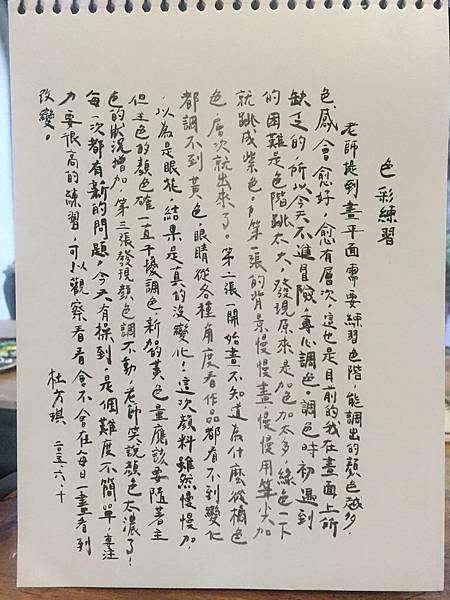 色彩練習
老師提到畫平面需要練習色階,能調出的顏色越多,
色感會愈好,愈有層次,這也是目前的我在畫面上所
缺乏的,所以今天不進冒險,專心調色。調色時初遇到
的困難是色階跳太大,發現原來是加色加太多,綠色一下
就跳成紫色,第一張的背景慢慢畫,慢慢用筆尖加
色,層次就出來了。第二張一開始畫不知道為什麼從橘色
都調不到黃色,眼睛從各種角度看作品都看不到變化
,以為是眼花,結果是真的沒變化!這次顏料雖然慢慢加,
但主色的顏色確一直干擾調色,新加的黃色量應該要隨著主
色的狀況增加,第三張發現顏色調不動,老師笑說顏色太濃了!
每一次都有新的問題,今天有操到,是個難度不簡單,專注
力要很高的練習,可以觀察看看會不會在每日一畫看到
改變。
杜方琪 二〇二五.六.十